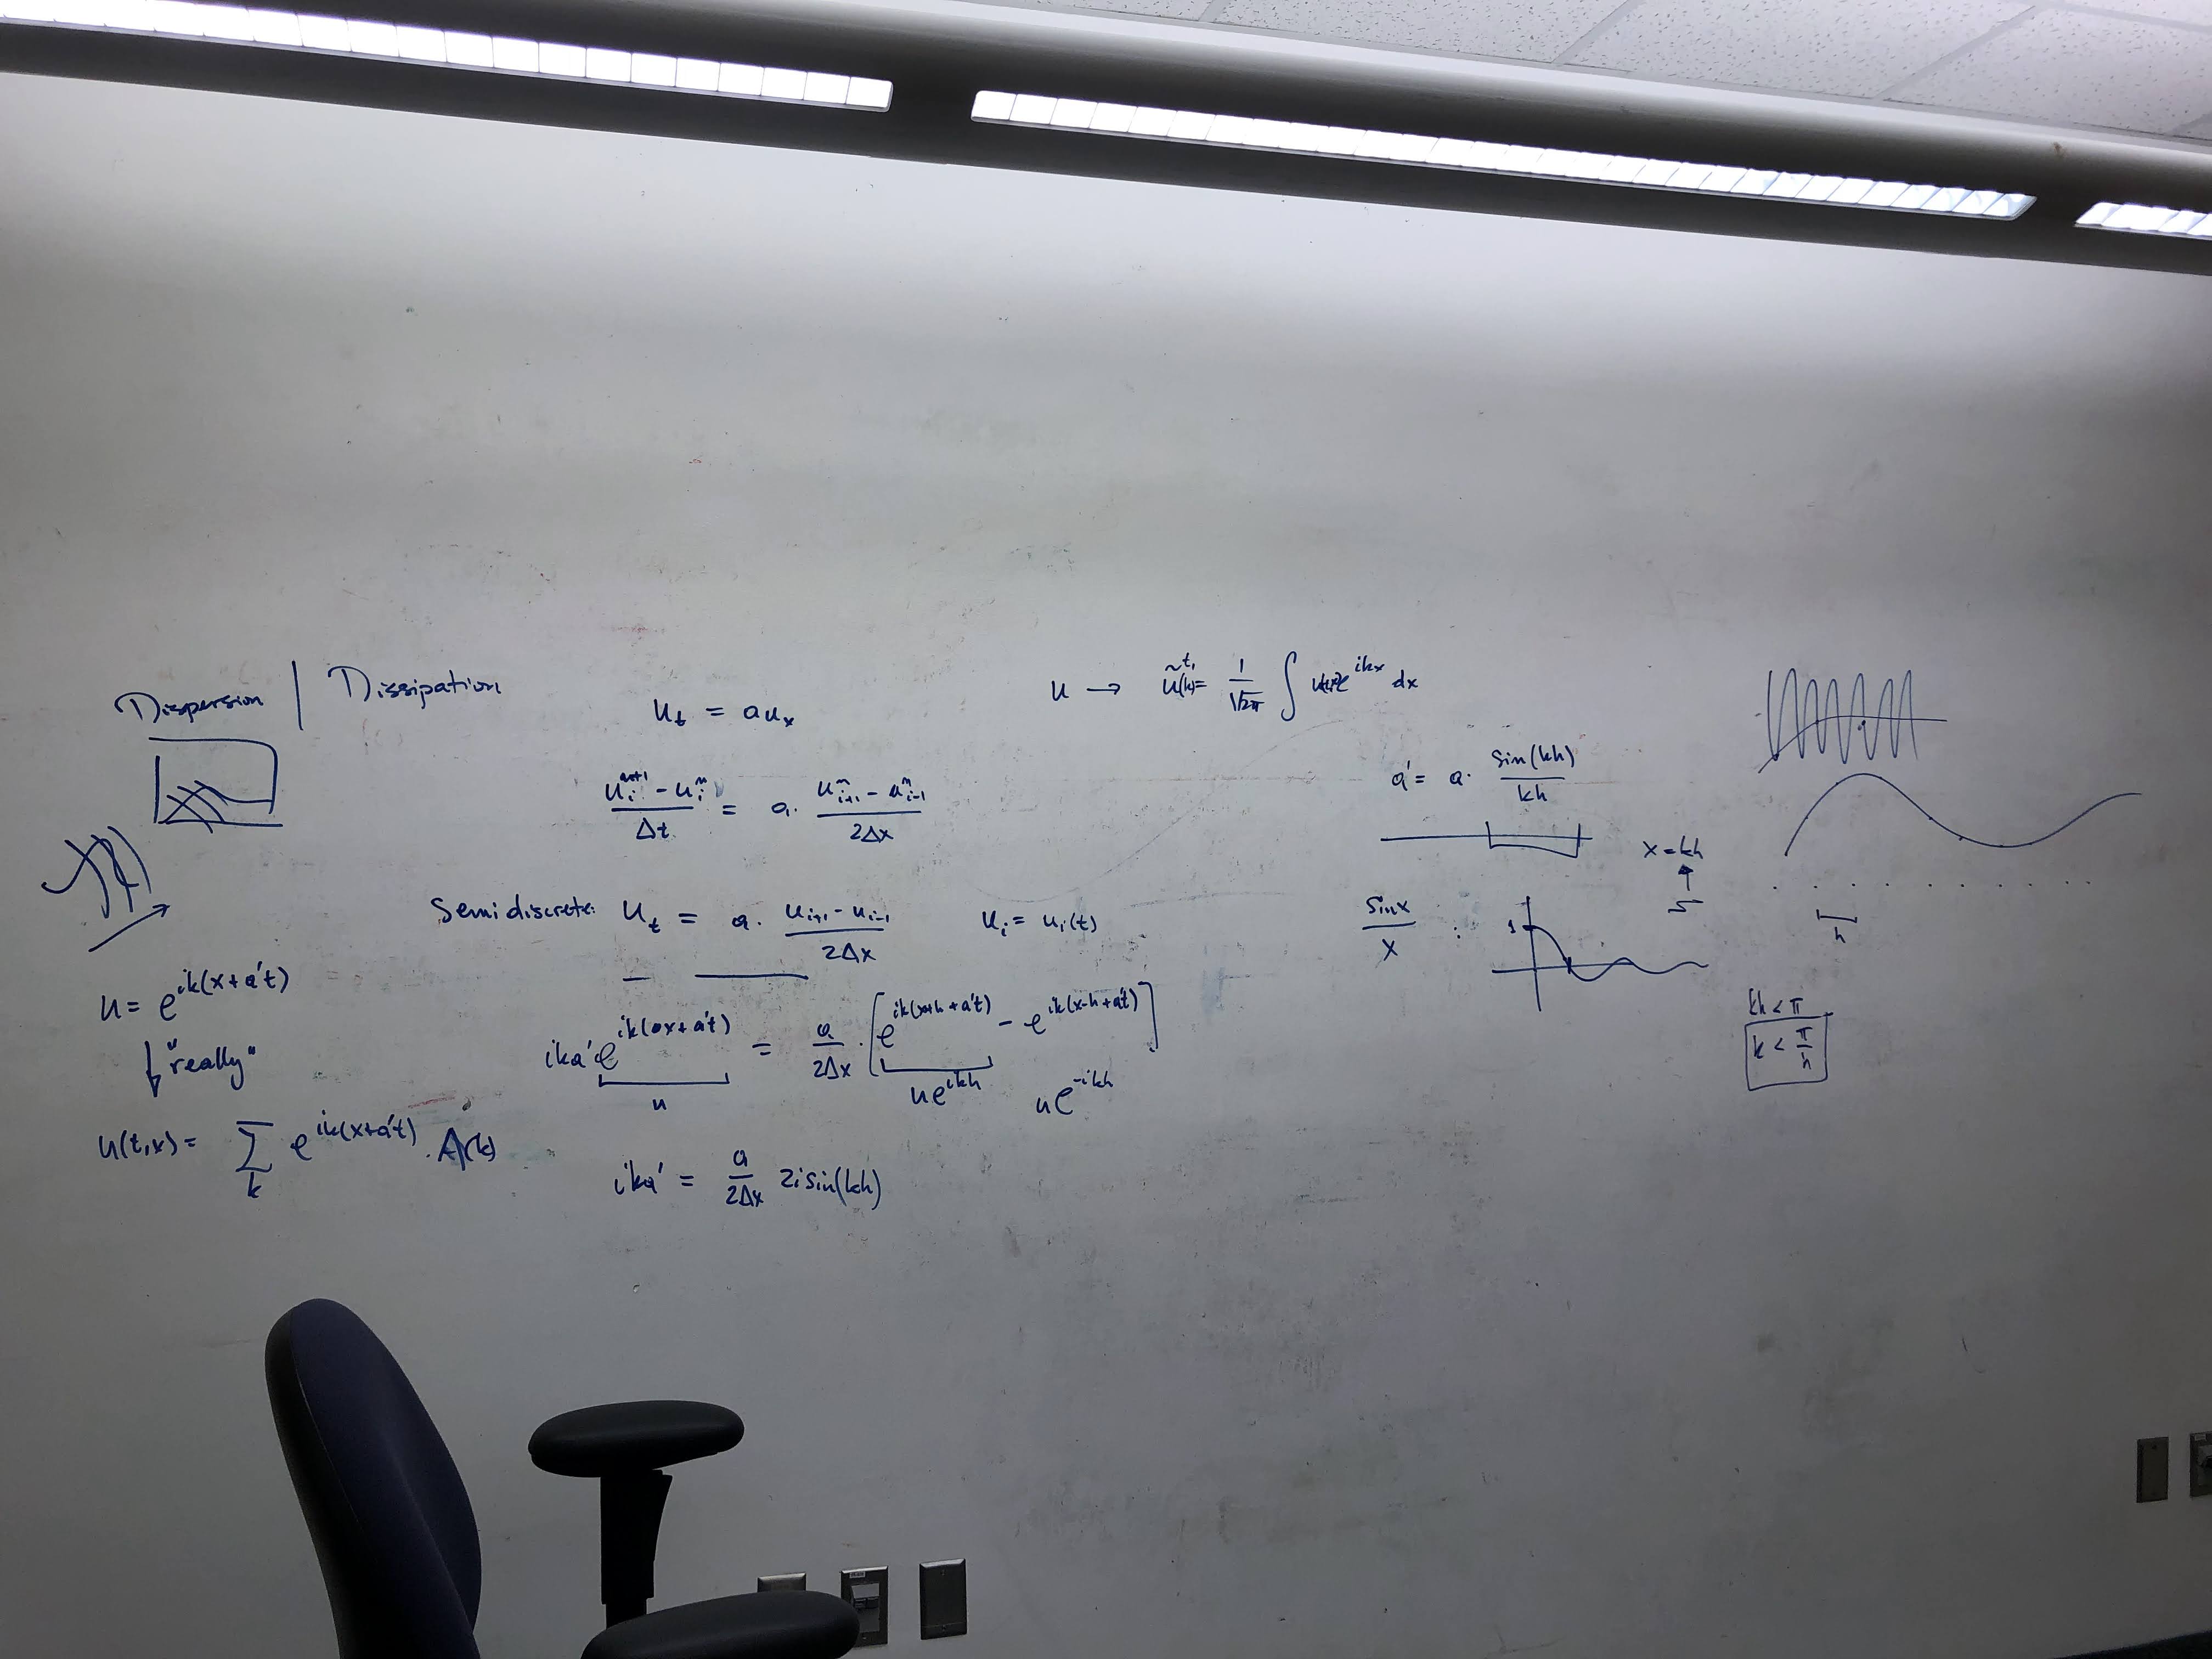 Dispersion | Dissipation
u = e^{ik(x+a't)}
↓ "really"
u(t,x) = Σ_k e^{ik(x+a't)} · A(k)
u_t = a u_x
(u_i^{n+1} - u_i^n)/Δt = a · (u_{i+1}^n - u_{i-1}^n)/(2Δx)
Semidiscrete: u_t = a · (u_{i+1} - u_{i-1})/(2Δx)    u_i = u_i(t)
ika' e^{ik(x+a't)} = a/(2Δx) · [e^{ik(x+h+a't)} - e^{ik(x-h+a't)}]
u    u e^{ikh}    u e^{-ikh}
ika' = a/(2Δx) 2i sin(kh)
u → ũ(k) = 1/√2π ∫ e^{ikx} dx
a' = a · sin(kh)/(kh)
x = kh
sin x / x :
1
h
kh < π
k < π/h